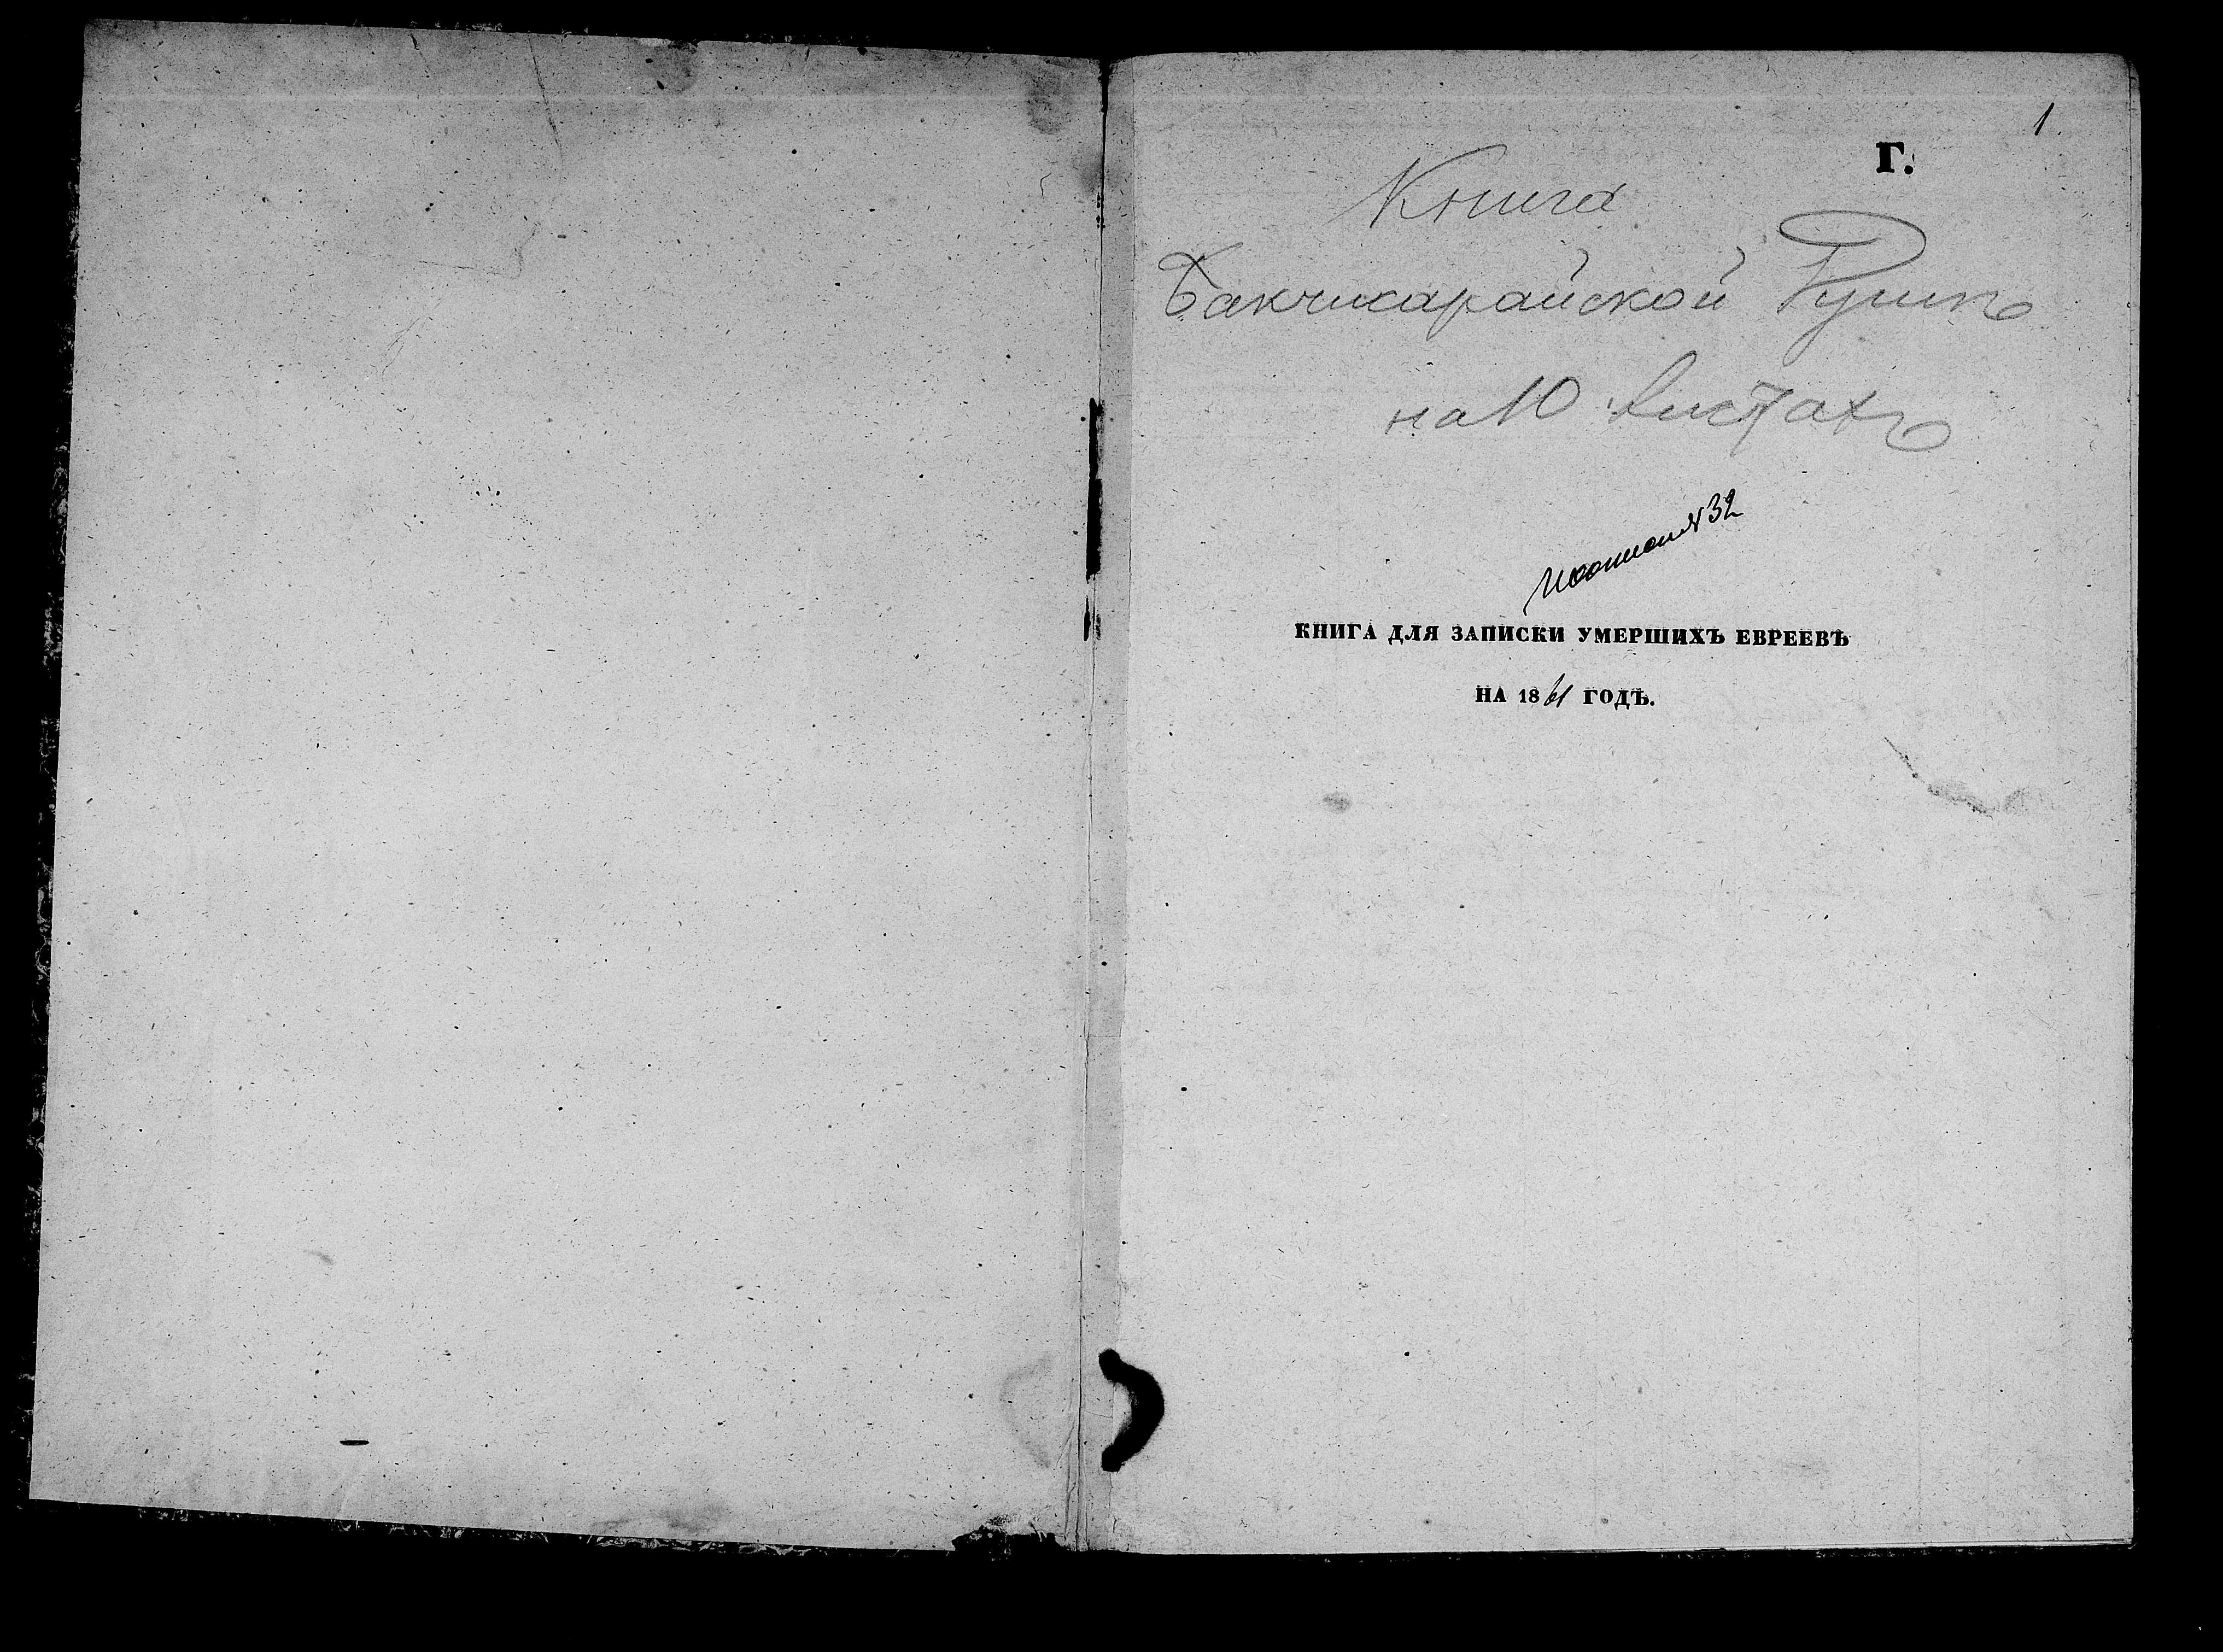 1.
Г.
Книга
Бакчисарайской
на 10 листахъ
№ 32
КНИГА ДЛЯ ЗАПИСКИ УМЕРШИХЪ ЕВРЕЕВЪ
НА 1861 ГОДЪ.